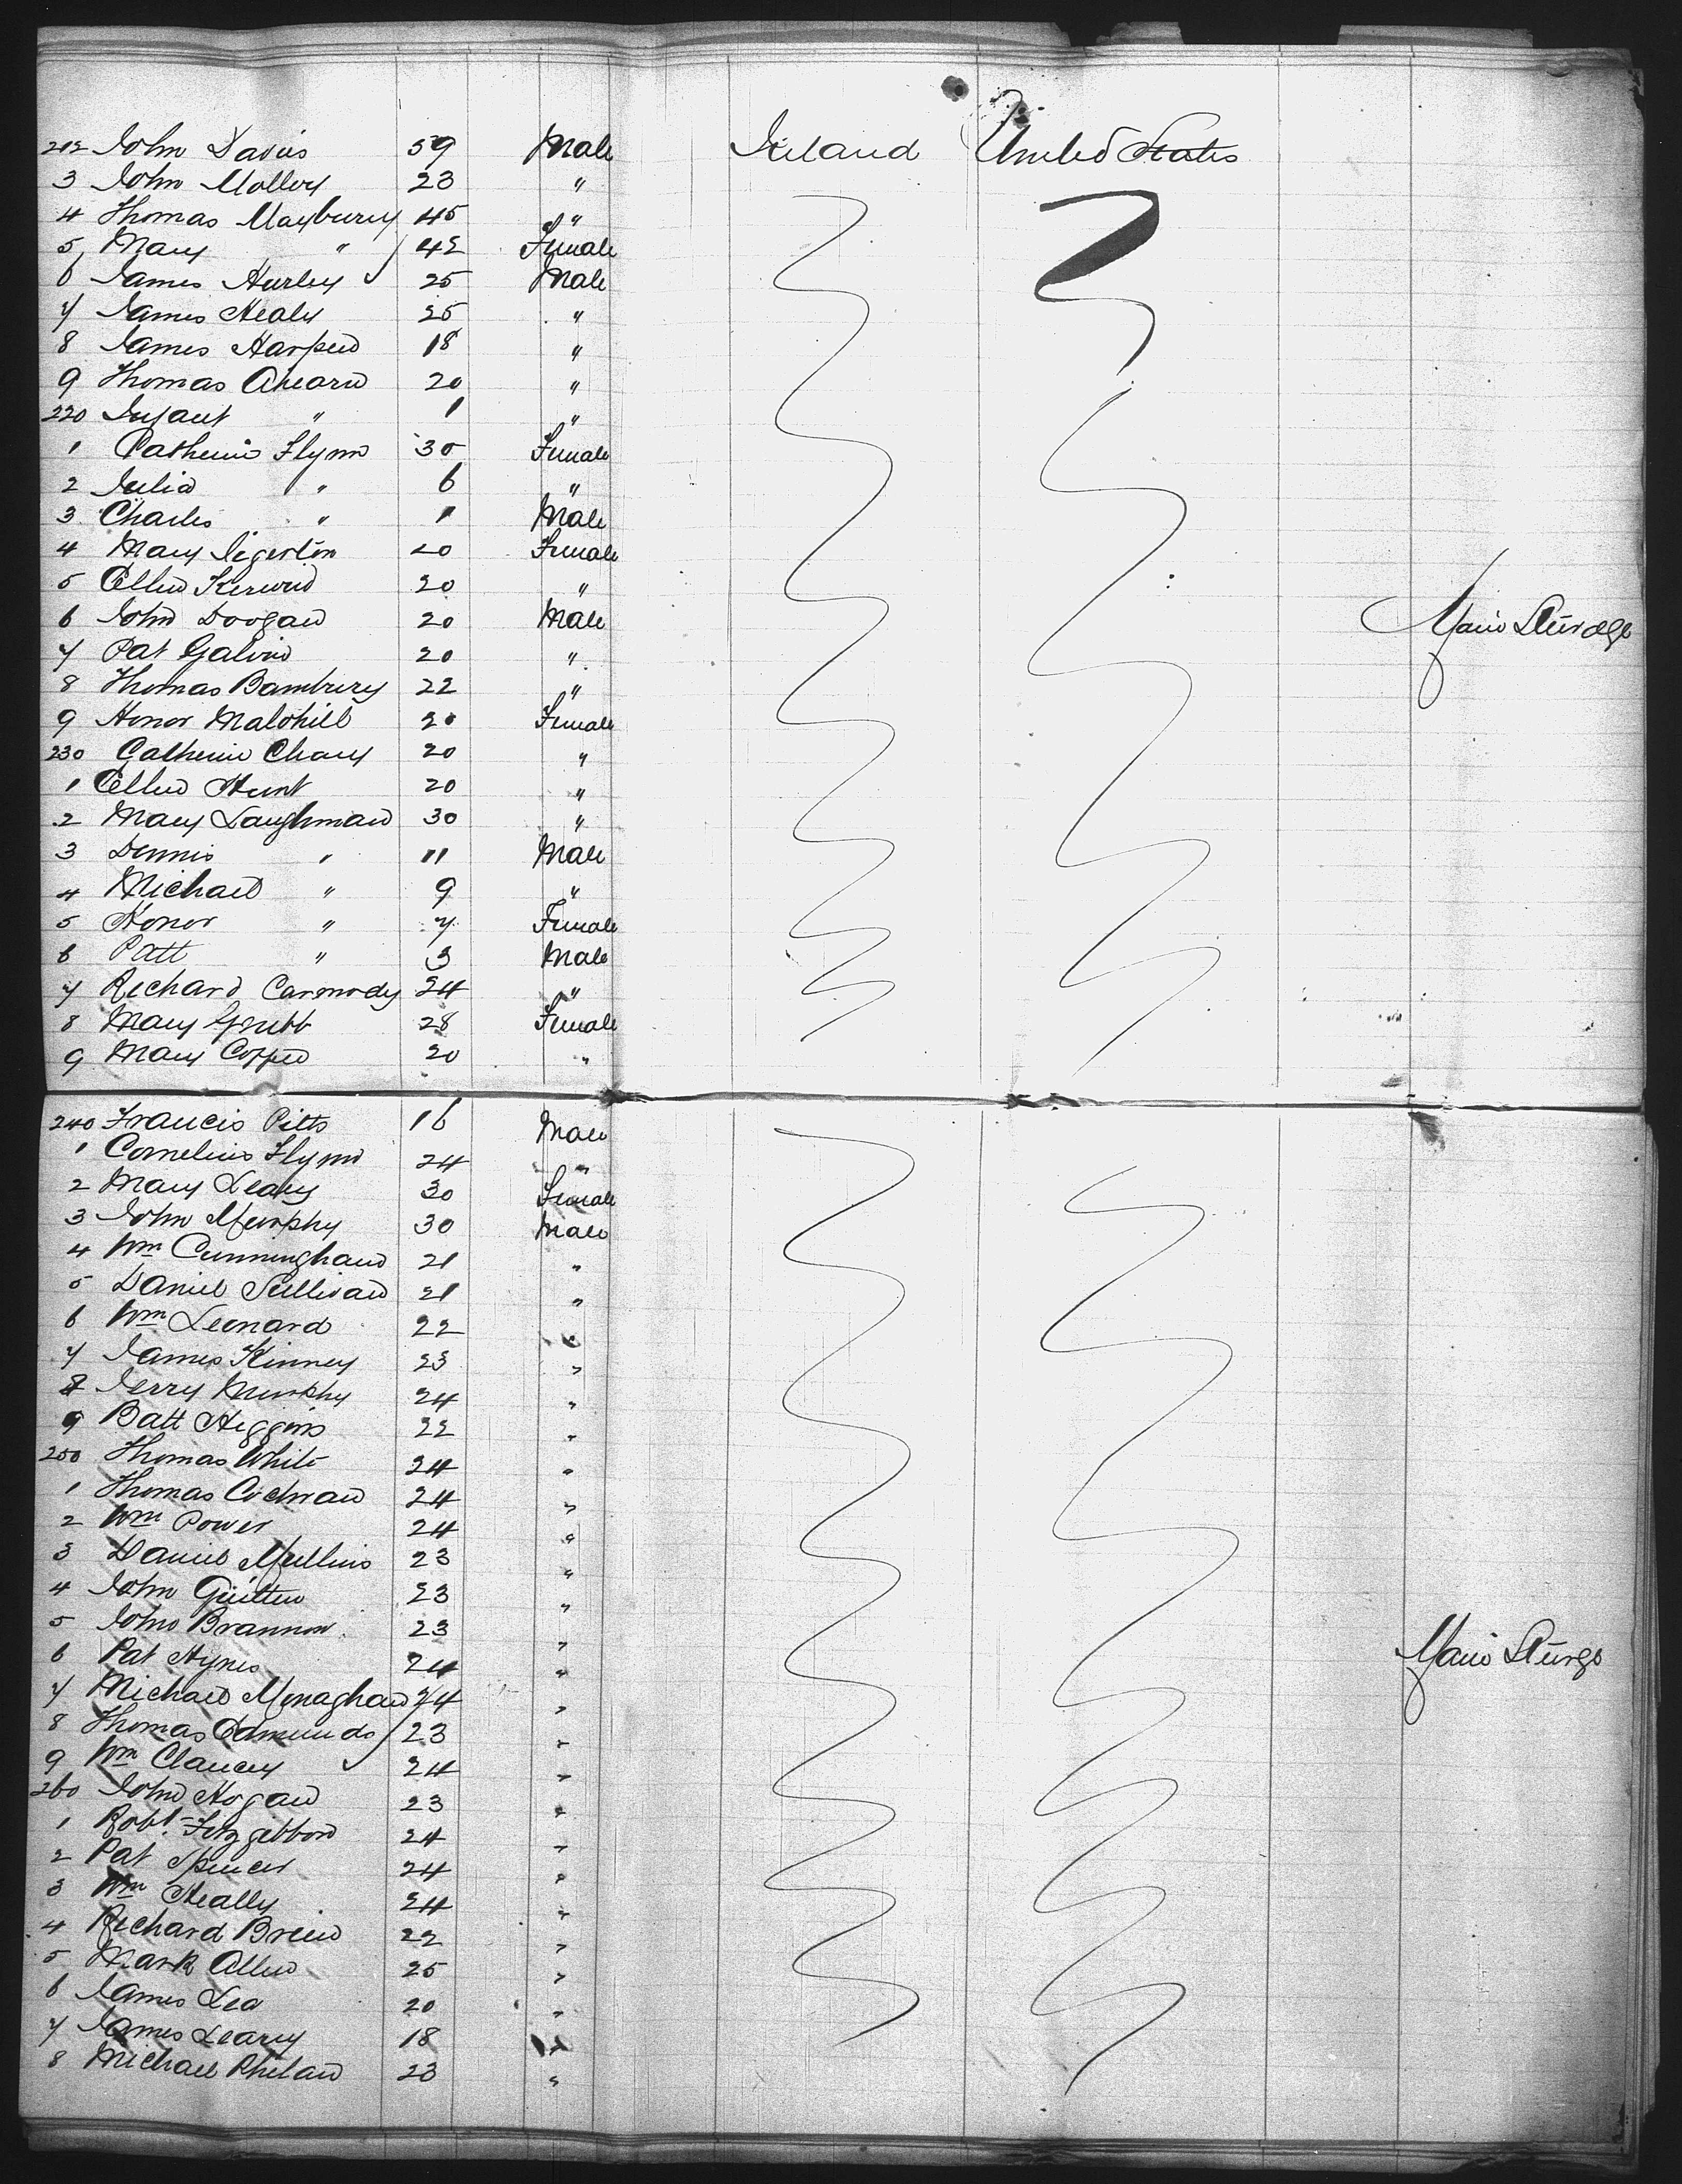 212 John Davies 59 Male Ireland United States
3 John Molloy 23 "
4 Thomas Maybury 45 "
5 Mary " 42 Female
6 James Hurley 25 Male
7 James Healy 25 "
8 James Harper 18 "
9 Thomas Ahearn 20 "
220 Infant " 1 "
1 Catherine Flynn 30 Female
2 Julia " 6 "
3 Charles " 1 Male
4 Mary Egerton 20 Female
5 Ellen Kerwin 20 "
6 John Doogan 20 Male Main Steerage
7 Pat Galvin 20 "
8 Thomas Bambury 22 "
9 Honor Malohill 20 Female
230 Catherine Chary 20 "
1 Ellen Hunt 20 "
2 Mary Laughman 30 "
3 Dennis " 11 Male
4 Michael " 9 "
5 Honor " 7 Female
6 Patt " 3 Male
7 Richard Carmody 24 "
8 Mary Grubb 28 Female
9 Mary Copper 20 "
240 Francis Pitts 16 Male
1 Cornelius Flynn 24 "
2 Mary Leary 30 Female
3 John Murphy 30 Male
4 Wm Cunningham 21 "
5 Daniel Sullivan 21 "
6 Wm Leonard 22 "
7 James Kinney 23 "
8 Jerry Murphy 24 "
9 Batt Higgins 22 "
250 Thomas White 24 "
1 Thomas Cochran 24 "
2 Wm Power 24 "
3 Daniel Mullins 23 "
4 John Guitten 23 "
5 John Brannon 23 "
6 Pat Hynes 24 " Main Steerge
7 Michael Monaghan 24 "
8 Thomas Edmunds 23 "
9 Wm Clancy 24 "
260 John Hogan 23 "
1 Robt Fitzgibbon 24 "
2 Pat Spencer 24 "
3 Wm Heally 24 "
4 Richard Breen 22 "
5 Mark Allen 25 "
6 James Lea 20 "
7 James Leary 18 "
8 Michael Phelan 23 "